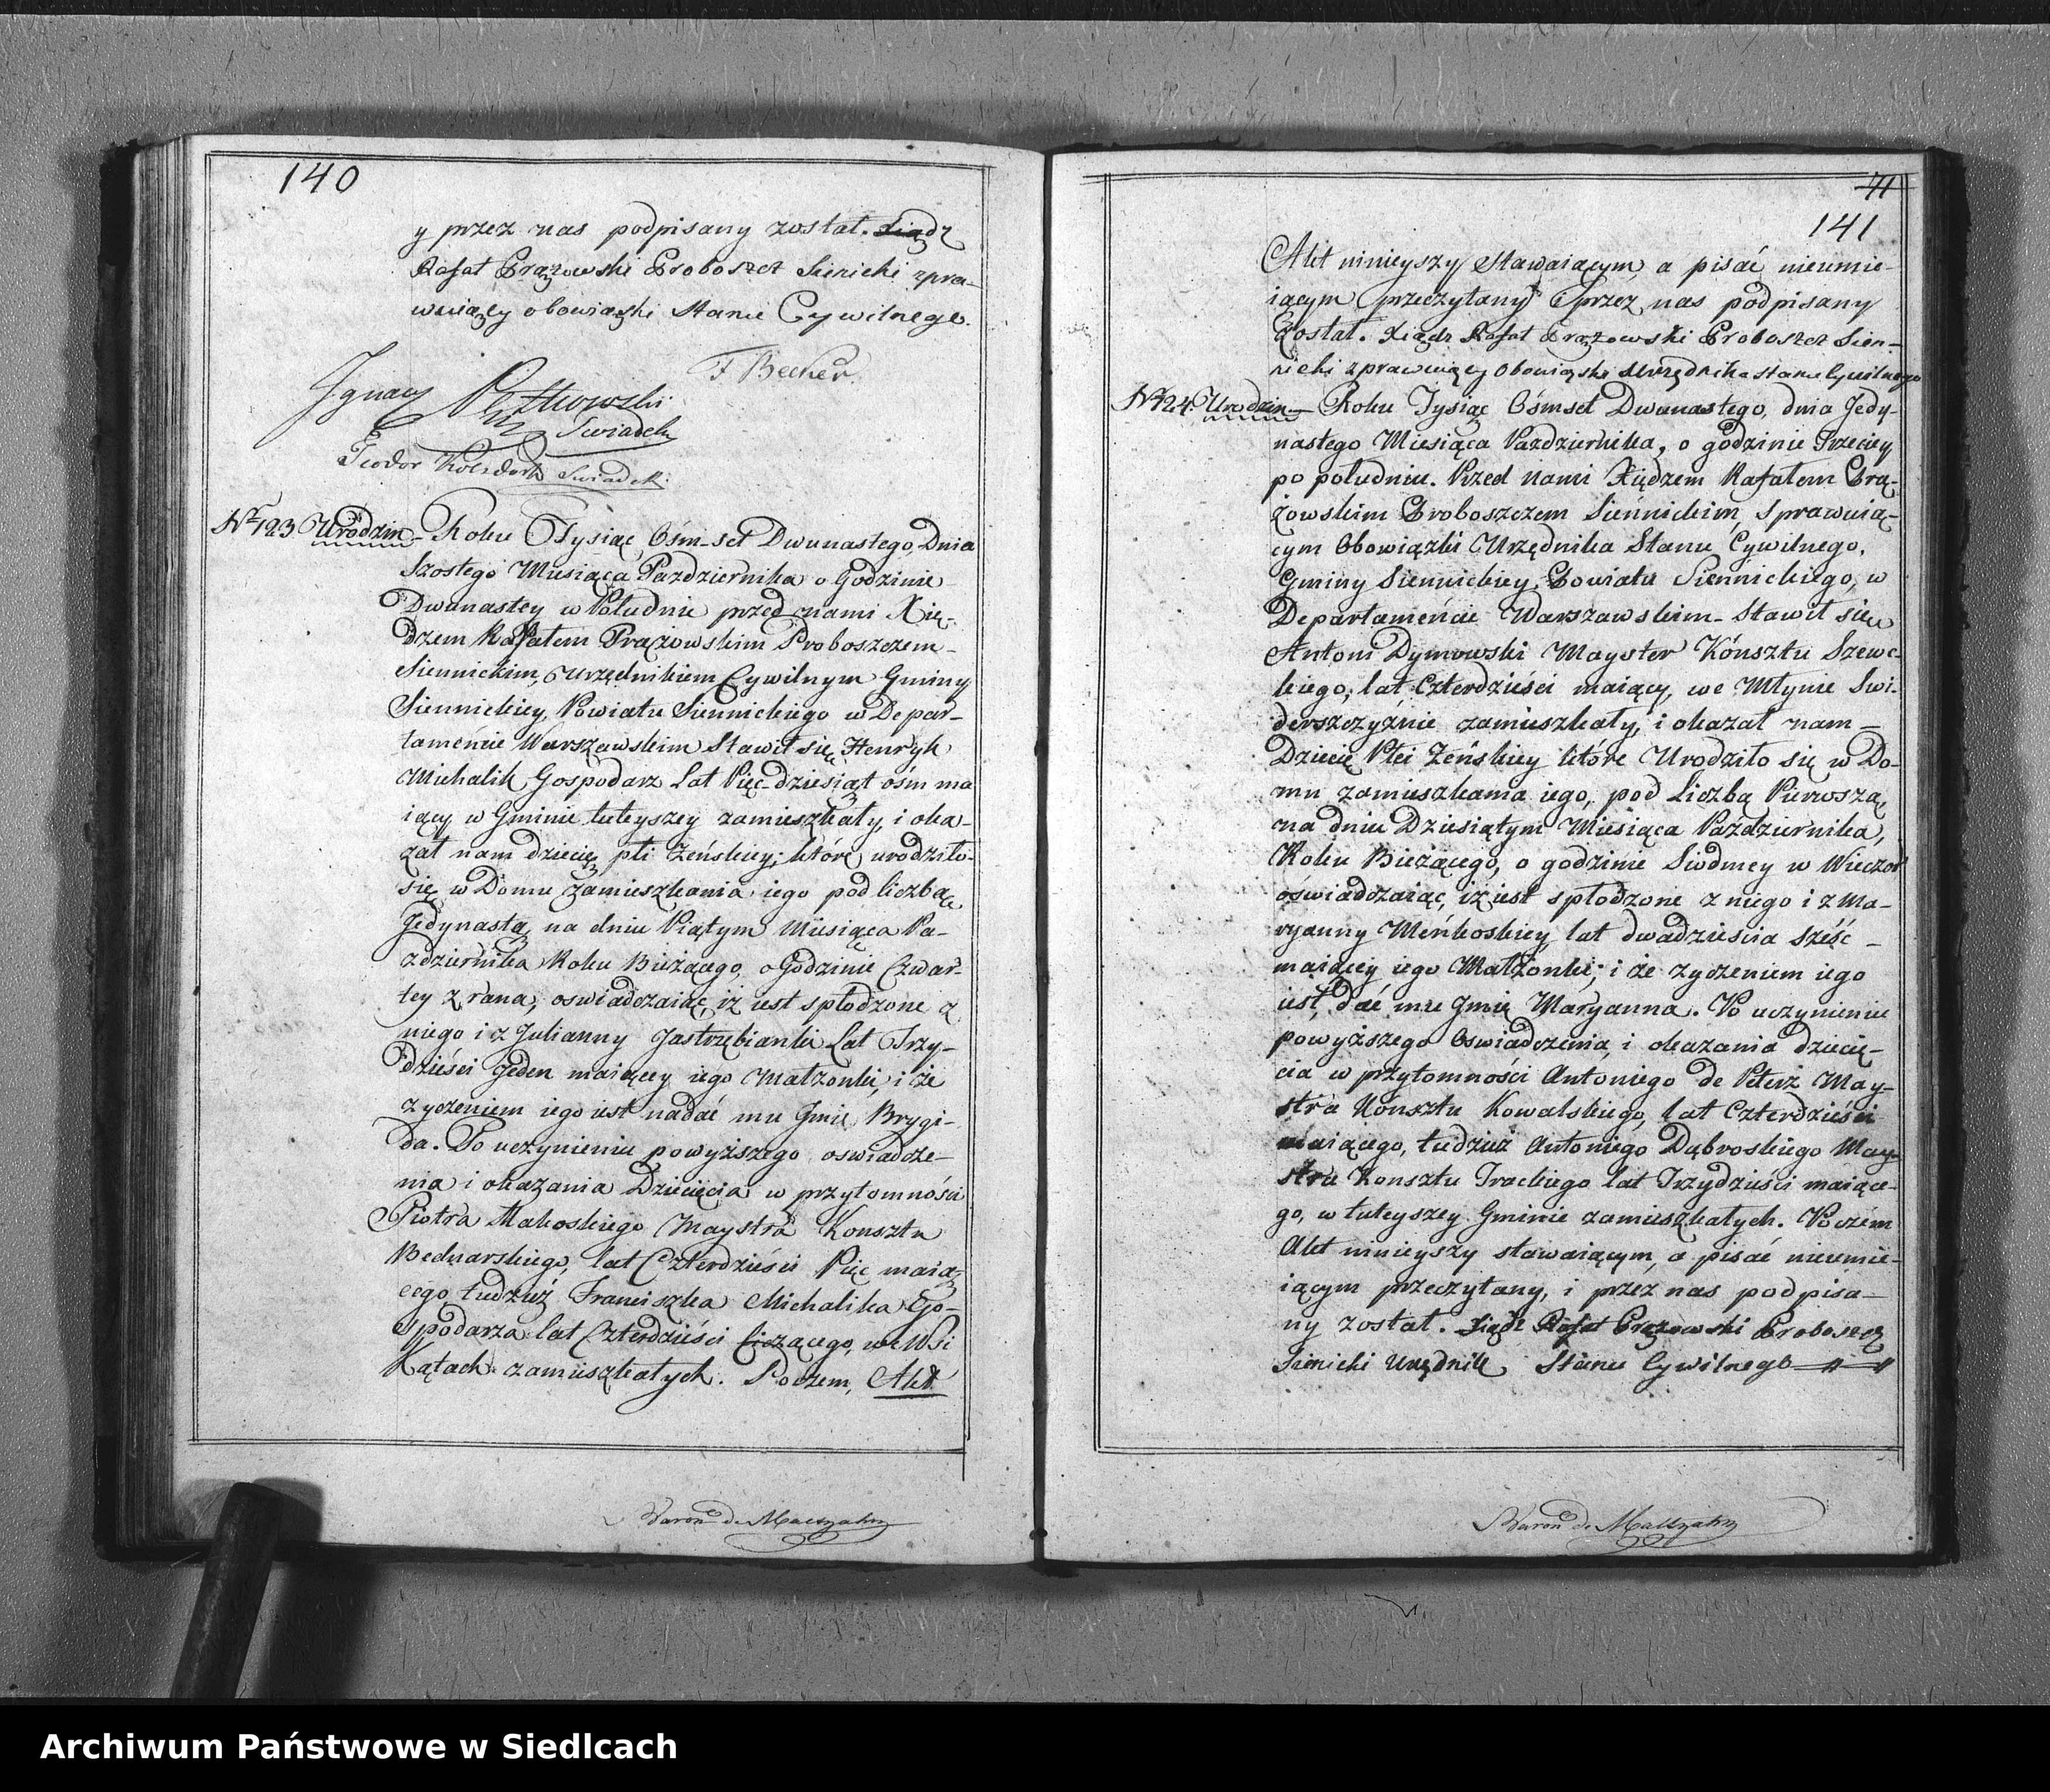 140
y przez nas podpisany został. Xiądz
Rafał Prążowski Proboszcz Sienicki zpra-
wuiący obowiązki Stanu Cywilnego.
F Becker
Ignacy
Swiadek
Teodor Swiadek
Nr 123 Urodzin – Roku Tysiąc Ośm-set Dwunastego Dnia
Szostego Miesiąca Pazdziernika o Godzinie
Dwunastey w Południe przed nami Xię-
dzem Rafałem Prązowskim Proboszczem –
Siennickim, Urzędnikiem Cywilnym Gminy
Siennickiey, Powiatu Siennickiego w Depar-
tamencie Warszawskim Stawił się Henryk
Michalik Gospodarz Lat Pięc-dziesiąt ośm ma
iący w Gminie tuteyszey zamieszkały, i oka-
zał nam dziecię płi Żeńskiey; które urodziło
się w Domu zamieszkania iego pod liczbą
Jedynastą, na dniu Piątym Miesiąca Pa-
zdziernika Roku Bieżącego, o Godzinie Czwar-
tey z rana, oswiadczaiąc, iż iest spłodzone z
niego i z Julianny Jastrzębianki Lat Trzy-
dzieści Jeden maiącey iego Małzonki, i że
zyczeniem iego iest nadać mu Imie Brygi-
da. Po uczynieniu powyższego oswiadcze-
nia i okazania Dziecięcia w przytomności
Piotra Makoskiego Maystra Konsztu
Bednarskiego, lat Czterdzieści Pięc maią-
cego tudzież Franciszka Michalika Go-
spodarza lat Czterdzieści liczącego, we Wsi
Kątach zamieszkałych. Poczem, Akt
Baron de Maltzahn
71
141
Akt ninieyszy Stawaiącym, a pisać nieumie-
iącym przeczytany i przez nas podpisany
został. Xiądz Rafał Prążowski Proboszcz Sien-
nicki zprawuiący Obowiąski Urzędnika Stanu Cywilnego
Nr 124. Urodzin – Roku Tysiąc Ośmset Dwunastego, dnia Jedy-
nastego Miesiąca Pazdziernika, o godzinie Trzeciey
po południu. Przed nami Xiędzem Rafałem Prą-
żowskim Proboszczem Siennickim, Sprawuią-
cym Obowiązki Urzędnika Stanu Cywilnego,
Gminy Siennickiey, Powiatu Siennickiego, w
Departamencie Warszawskim – Stawił się
Antoni Dymowski Mayster Kónsztu Szewc-
kiego, lat Czterdzieści maiący, we Młynie Swi-
derszczyźnie zamieszkały, i okazał nam –
Dziecię Płci Żeńskiey które Urodziło się w Do-
mu zamieszkania iego, pod Liczbą Pierwszą
na dniu Dziesiątym Miesiąca Października,
Roku Bieżącego, o godzinie Siodmey w Wieczor
oświadczaiąc, iż iest spłodzone z niego i z Ma-
ryanny Meńkoskiey lat dwadzieścia sześć –
maiącey iego Małżonki; i że zyczeniem iego
iest, dać mu Imię Maryanna. Po uczynieniu
powyższego Oswiadczenia, i okazania dziecię-
cia w przytomności Antoniego de Peterż May-
stra Konsztu Kowalskiego, lat Czterdzieści
maiącego, tudzież Antoniego Dąbroskiego May-
stra Konsztu Trackiego lat Trzydzieści maiące-
go, w tuteyszey Gminie zamieszkałych. Poczem
Akt ninieyszy stawaiącym, a pisać nieumie-
iącym przeczytany, i przez nas podpisa-
ny został. Xiądz Rafał Prązowski Proboszcz
Sienicki Urzędnik Stanu Cywilnego
Baron de Maltzahn
Archiwum Państwowe w Siedlcach